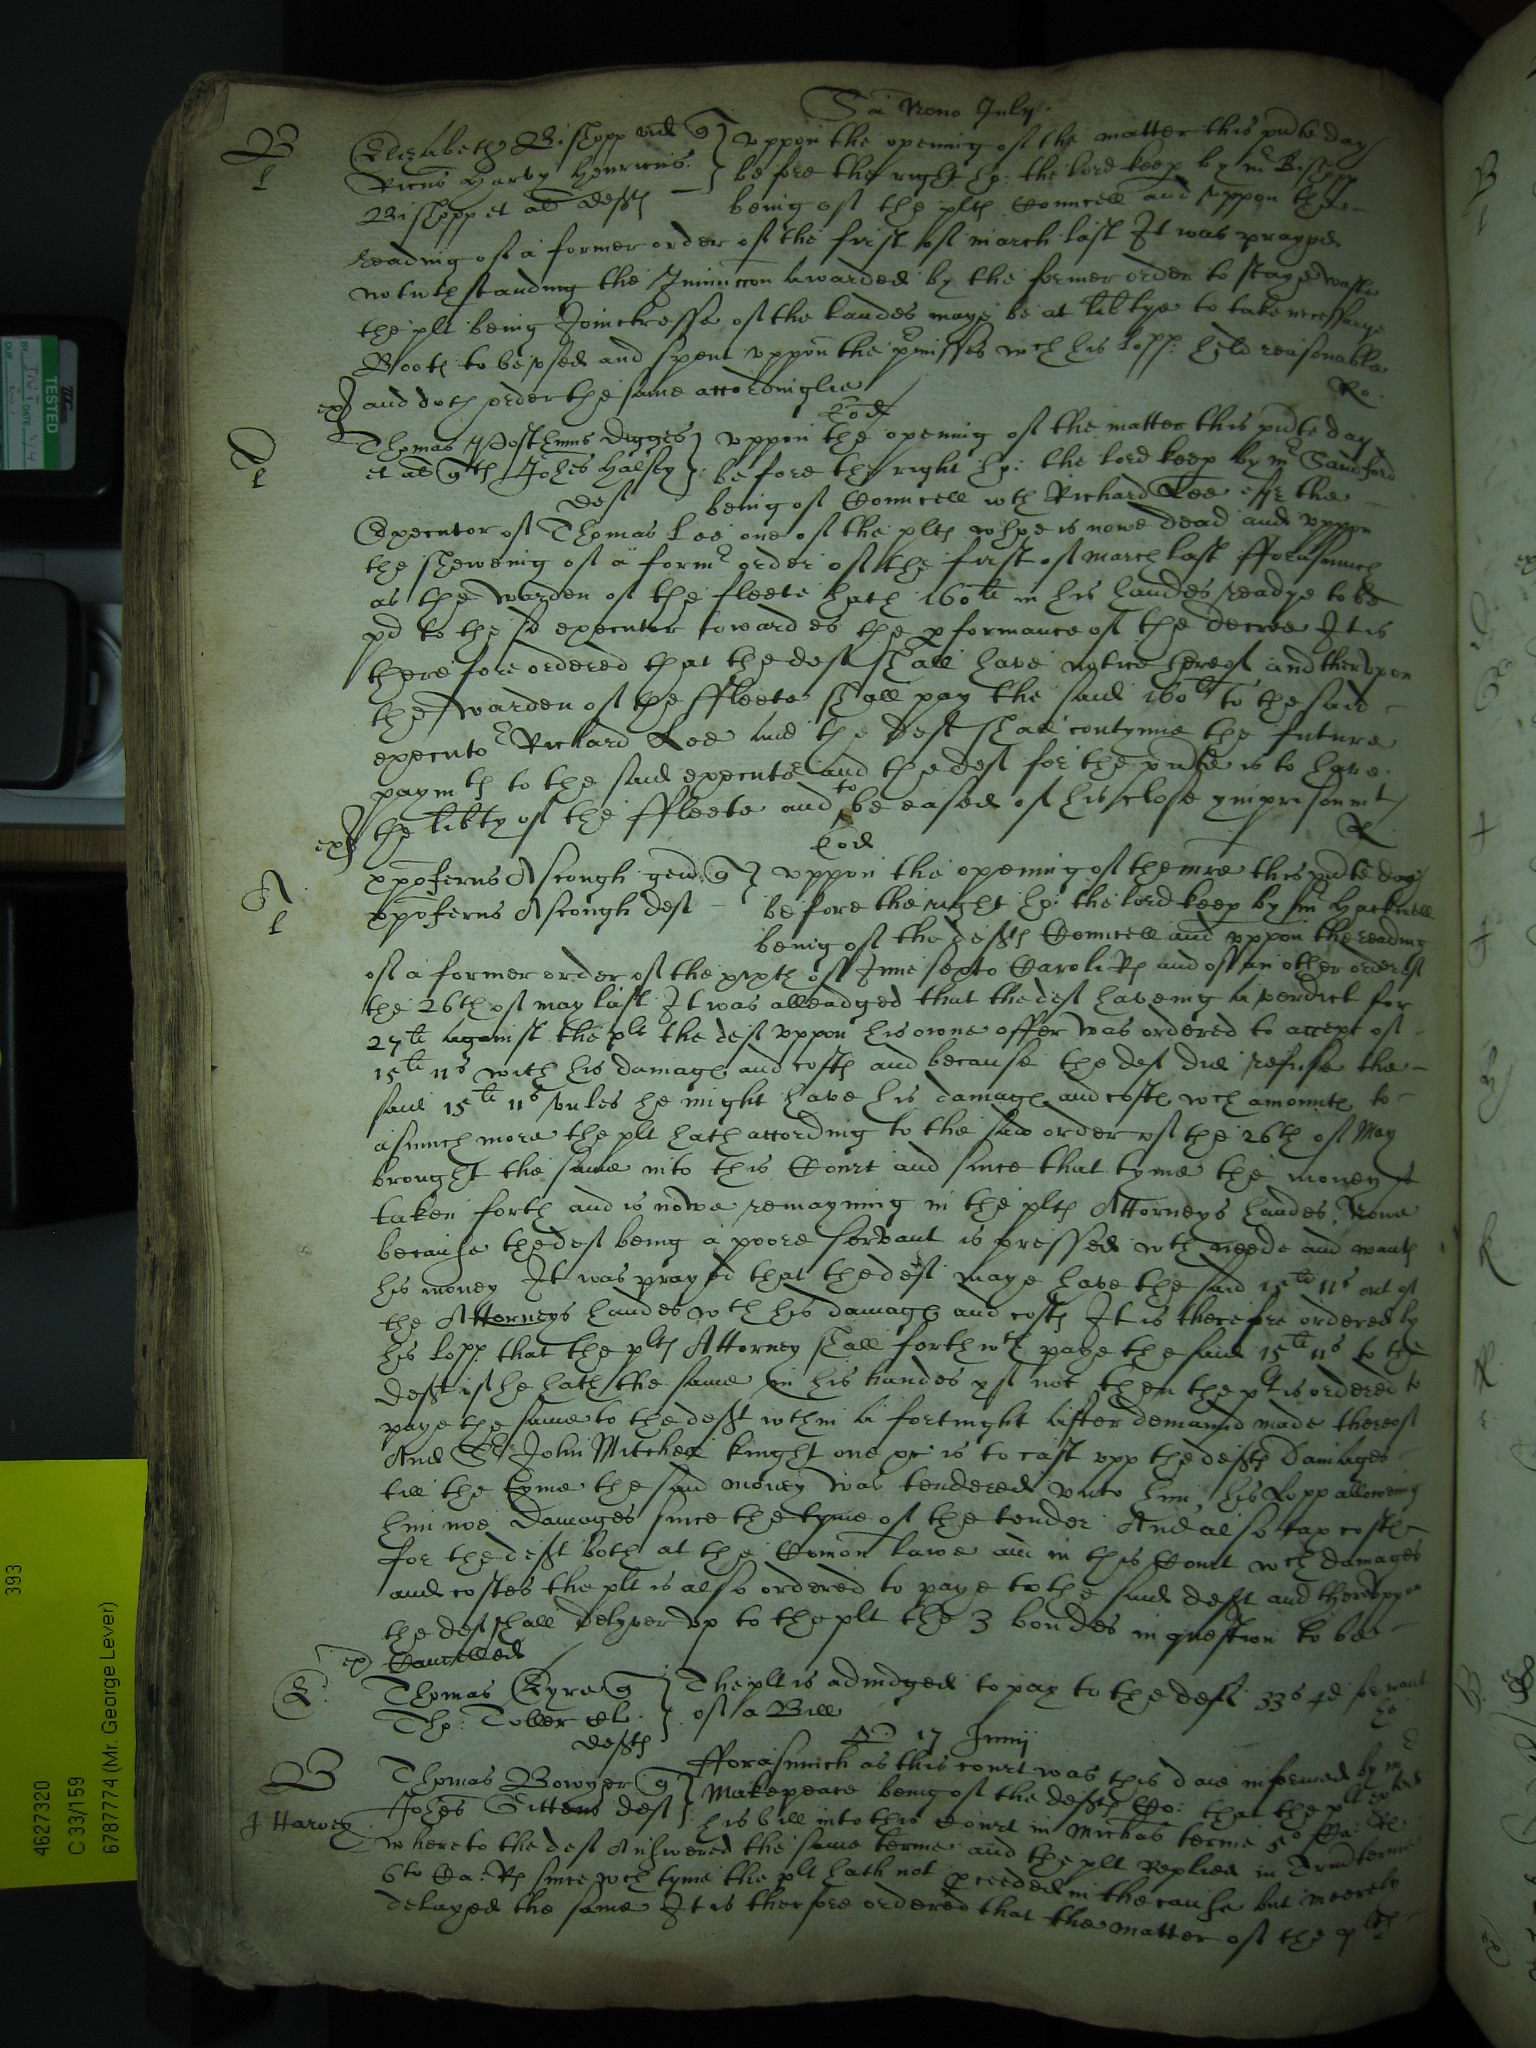 Sa Nono July
B
l
Elizabeth Bishopp vid q
Ricus Harby Henricus
Bishopp et al deftes
uppon the opening of the matter this pnte day
before the right ho: the lord keep by mr Bishopp
being of the pltes Councell and uppon the
reading of a former order of the first of march last It was prayed
notwthstanding the Iniunccon awarded by the former order to stay waste
the plt being Joinctresse of the landes maye be at libtye to take necessarye
Bootes to be used and spent uppon the pmisses wch his lopp: held reasonable
exr and doth order the same accordinglie
Ro.
Eod
D
l
Thomas Posthumus Digges
et al q th Johes Halsey
def
uppon the opening of the matter this pnte day
before the right ho: the lord keep by mr Sandford
being of Councell wth Richard Lee esqr the
Executor of Thomas Lee one of the pltes whoe is nowe dead and uppon
the shewing of a formr order of the first of march last fforasmuch
as the warden of the fleete hath 160li in his handes readye to be
pd to the sd executer towardes the pformance of the decree It is
therefore ordered that the deft shall have notice hereof and therupon
the warden of the ffleete shall pay the said 160li to the said
executor Richard Lee and the deft shall contynue the future
paymts to the said executor and the deft for the pnte is to have
the libty of the ffleete and to be eased of his close ymprisonmt
exr
R
Eod
A
l
Xpoferus Ascough gen: q
Xpoferus Ascough deft
uppon the opening of the mre this pnte day
before the right ho: the lord keep by mr Hackwell
being of the deftes Councell and uppon the reading
of a former order of the sixth of June sexto Caroli Rs and of an other order of
the 26th of may last It was alleadged that the deft haveing a verdict for
27li against the plt the deft uppon his owne offer was ordered to accept of
15li 11s with his damages and costes and because the deft did refuse the
said 15li 11s unles he might have his damages and costes wch amounts to
asmuch more the plt hath according to the said order of the 26th of May
brought the same into this Court and since that tyme the money is
taken forth and is nowe remayning in the pltes Attorneys handes, Nowe
because the deft being a poore servant is pressed wth neede and wantes
his money It was prayed that the deft maye have the said 15li 11s out of
the Attorneys handes wth his damages and costes It is therefore ordered by
his lopp: that the pltes Attorney shall forthwth paye the said 15li 11s to the
deft if he hath the same in his handes yf not then the plt is ordered to
paye the same to the deft wthin a fortnight after demannd made thereof
And Sr John Mitchell knight one &c is to cast upp the deftes Damages
till the tyme the said money was tendered unto him, his Lopp allowing
him noe Damages since the tyme of the tender And also tax costes
for the deft both at the Comon lawe and in this Court wch damages
and costes the plt is also ordered to paye to the said deft and thereuppon
the deft shall delyver up to the plt the 3 bondes in question to be
ex
Cancelled
E
Thomas Eyre q
Tho: Toller et al
deftes
The plt is adiudged to pay to the deft 33s 4d for want
of a Bill
he
17 Junij
B
J Harvey
Thomas Bowyer q
Johes Gittens deft
fforasmuch as this court was this daie informed by mr
Makepeace being of the deftes Co: that the plt exhted
his bill into this Court in Michas terme 5o Ca: Re
whereto the deft Answered the same terme and the plt Replied in Trin terme
6to Ca: Rs since wch tyme the plt hath not pceeded in the cause but meerely
delayed the same It is therfore ordered that the matter of the pltes
TESTED
BY
DATE
4627320
C 33/159
6787774 (Mr. George Lever)
393